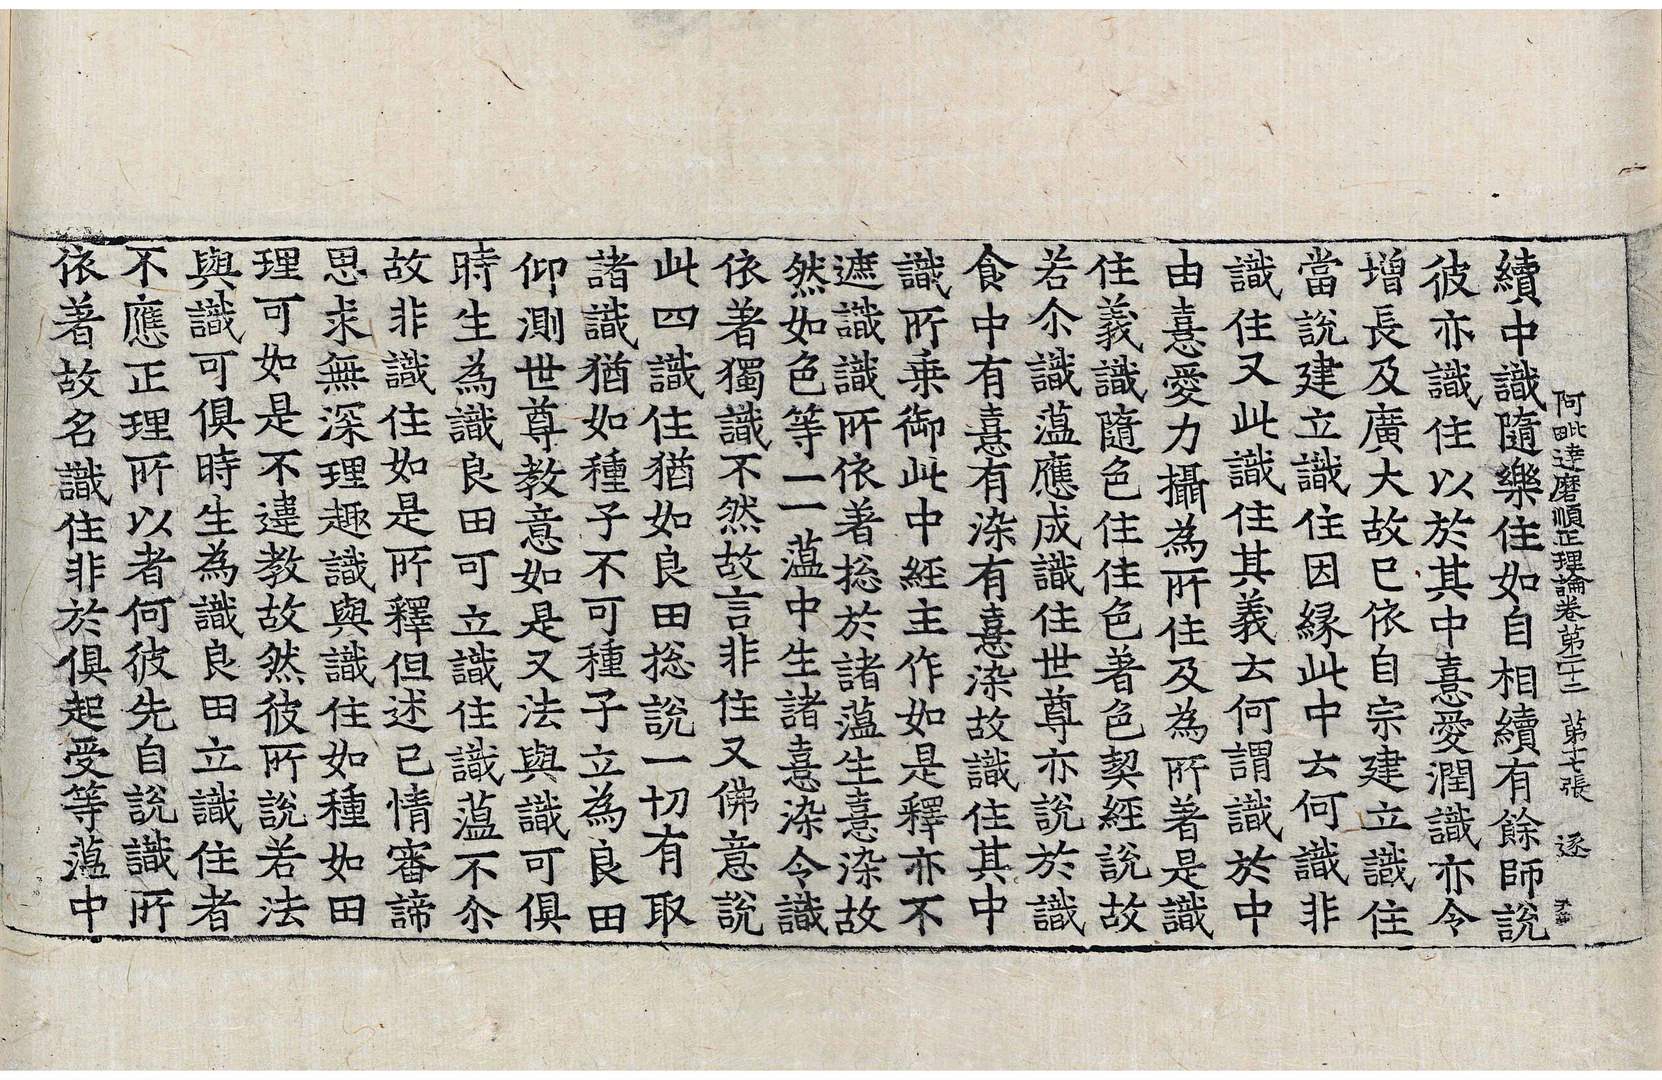 阿毗達磨順正理論卷第二十二 第七張 逐
續中識隨樂住如自相續有餘師說
彼亦識住以於其中憙愛潤識亦令
增長及廣大故已依自宗建立識住
當說建立識住因緣此中云何識非
識住又此識住其義云何謂識於中
由憙愛力攝為所住及為所著是識
住義識隨色住住色著色契經說故
若尒識蘊應成識住世尊亦說於識
食中有憙有染有憙染故識住其中
識所乗御此中經主作如是釋亦不
遮識識所依著捴於諸蘊生憙染故
然如色等一一蘊中生諸憙染令識
依著獨識不然故言非住又佛意說
此四識住猶如良田捴說一切有取
諸識猶如種子不可種子立為良田
仰測世尊教意如是又法與識可俱
時生為識良田可立識住識蘊不尒
故非識住如是所釋但述已情審諦
思求無深理趣識與識住如種如田
理可如是不違教故然彼所說若法
與識可俱時生為識良田立識住者
不應正理所以者何彼先自說識所
依著故名識住非於俱起受等蘊中